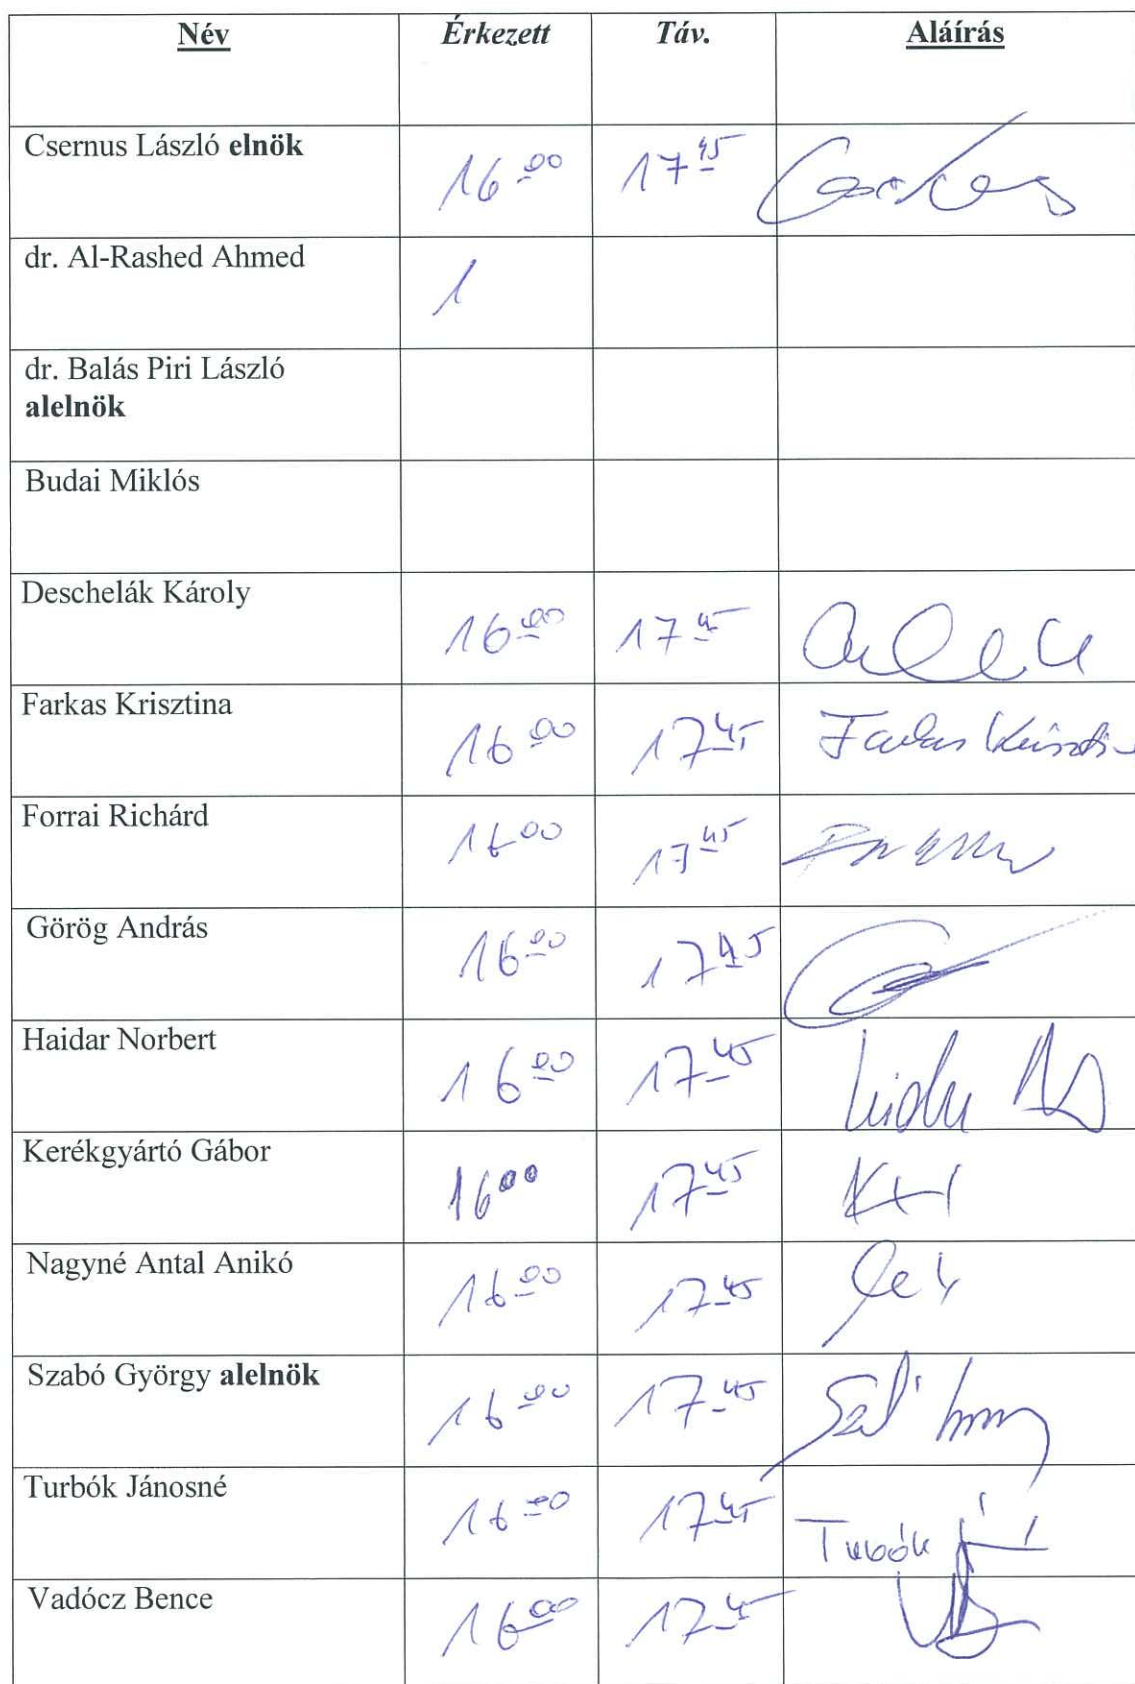 Név Érkezett Táv. Aláírás
Csernus László elnök
16 00 17 45
dr. Al-Rashed Ahmed
1
dr. Balás Piri László
alelnök
Budai Miklós
Deschelák Károly
16 00 17 45
Farkas Krisztina
16 00 17 45 Farkas Kriszti
Forrai Richárd
16 00 17 45
Görög András
16 00 17 45
Haidar Norbert
16 00 17 45
Kerékgyártó Gábor
16 00 17 45
Nagyné Antal Anikó
16 00 17 45
Szabó György alelnök
16 00 17 45
Turbók Jánosné
16 00 17 45 Turbók
Vadócz Bence
16 00 17 45